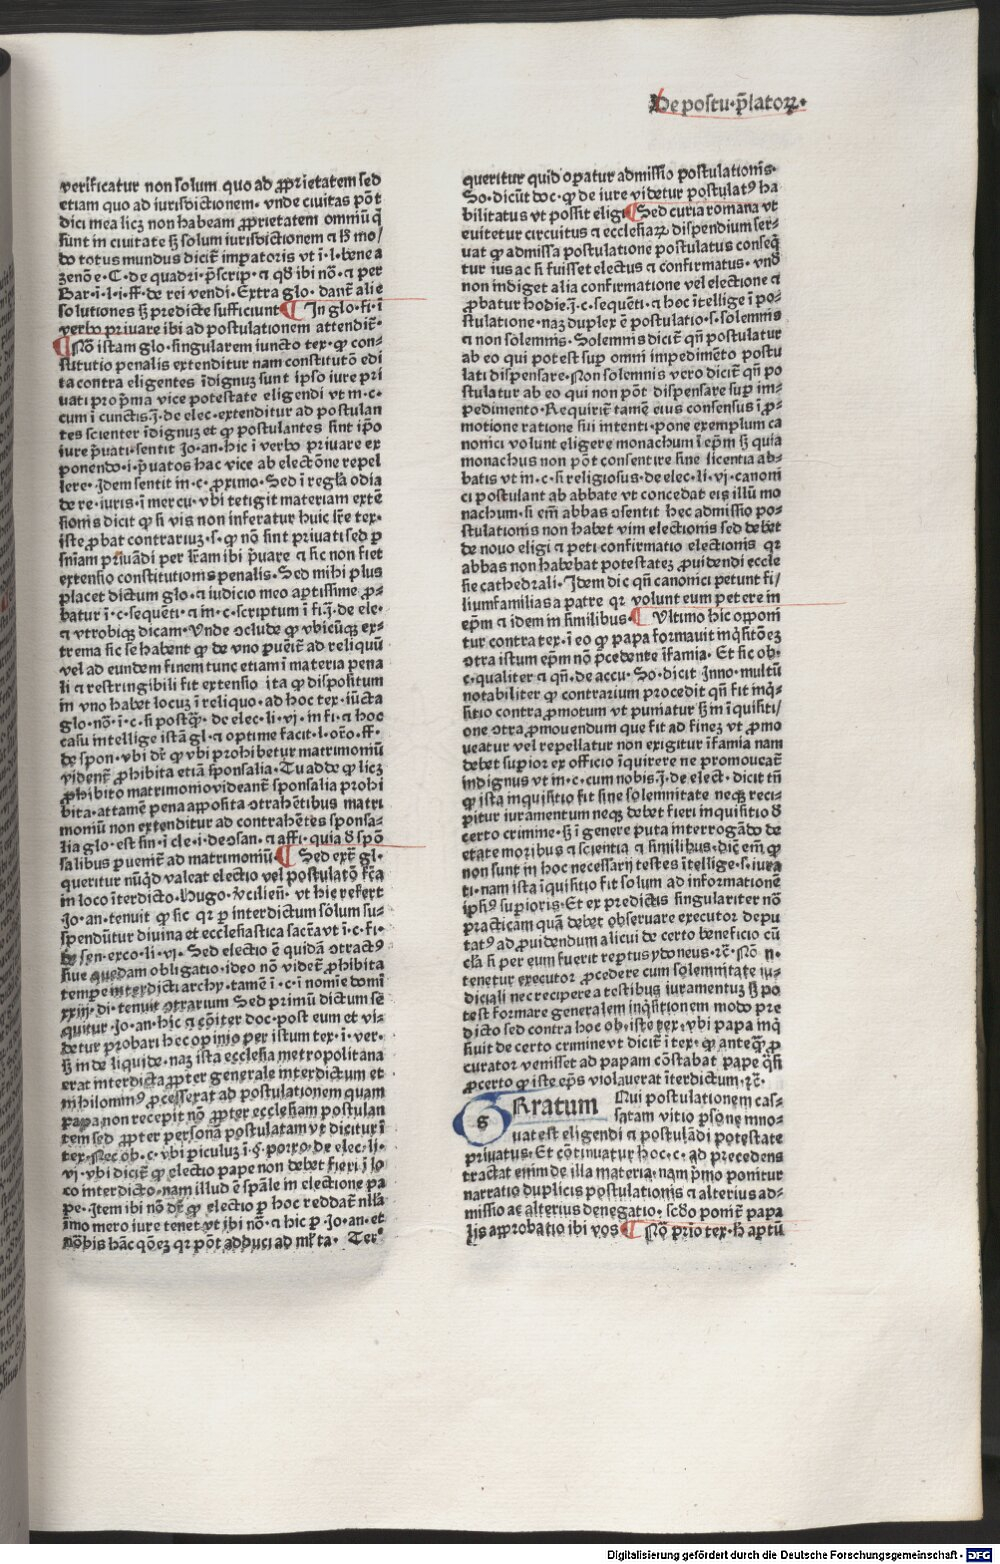 De postu. p̄latoꝝ.
verificatur non solum quo ad ꝓprietatem sed
etiam quo ad iurisdictionem. vnde ciuitas pōt
dici mea licꝫ non habeam ꝓprietatem omniū q̄
sunt in ciuitate sꝫ solum iurisdictionem ⁊ hͦ mo/
do totus mundus dicit̄ imꝑatoris vt ī.l. bene a
zenōe. C. de quadri. p̄scrip. ⁊ qđ ibi nō. ⁊ per
Bar. ī.l.i. ff. de rei vendi. Extra glo. dant̄ alie
solutiones sꝫ predicte sufficiunt ¶ In glo. fi. ī
verbo priuare ibi ad postulationem attendit̄.
¶ Nō istam glo. singularem iuncto tex. ꝙ con-
stitutio penalis extenditur nam constitutō edi
ta contra eligentes īdignuꝫ sunt ipso iure pri
uati pro p̄ma vice potestate eligendi vt in.c.
cum ī cunctis.j. de elec. extenditur ad postulan
tes scienter īdignuꝫ et ꝙ postulantes sint ip̄o
iure p̄uati. sentit Jo. an. hic ī verbo priuare ex
ponendo.i. p̄uatos hac vice ab electōne repel
lere. Idem sentit in.c. ꝓximo. Sed ī regl'a odia
de re. iuris. ī mercu. vbi tetigit materiam extē
sionis dicit ꝙ si vis non inferatur huic lr̄e tex.
iste ꝓbat contrariuꝫ.s. ꝙ nō sint priuati sed ꝑ
sn̄iam priuādi per lr̄am ibi p̄uare ⁊ sic non fiet
extensio constitutionis penalis. Sed mihi plus
placet dictum glo. ⁊ iudicio meo aptissime ꝓ-
batur ī.c. sequēti. ⁊ in.c. scriptum ī fi.j. de ele.
⁊ vtrobiqꝫ dicam. Vnde ↄclude ꝙ vbicūqꝫ ex-
trema sic se habent ꝙ de vno ꝑuēit̄ ad reliquū
vel ad eundem finem tunc etiam ī materia pena
li ⁊ restringibili fit extensio ita ꝙ dispositum
in vno habet locuꝫ ī reliquo. ad hoc tex. iūcta
glo. nō. ī.c. si postq̄ꝫ. de elec. li. vj. in fi. ⁊ hoc
casu intellige istā gl. ⁊ optime facit.l. orō. ff.
de spon. vbi dr̄ ꝙ vbi prohibetur matrimoniū
vident̄ ꝓhibita etiā sponsalia. Tu adde ꝙ licꝫ
ꝓhibito matrimonio videant̄ sponsalia prohi
bita. attamē pena apposita ↄtrahētibus matri
moniū non extenditur ad contrahētes sponsa-
lia glo. est sin. ī cle. i. de ↄsan. ⁊ affi. quia đ spō
salibus ꝑuenit̄ ad matrimoniū. ¶ Sed ext̄ gl.
queritur nūqđ valeat electio vel postulatō fc̄a
in loco īterdicto. Hugo. Vcilien̄. vt hic refert
Jo. an. tenuit ꝙ sic qr ꝑ interdictum solum su-
spendūtur diuina et ecclesiastica sacr̄a vt ī.c. fi.
de sen. exco. li. vi. Sed electio ē quidā ↄtractꝰ
siue quedam obligatio. ideo nō videt̄ ꝓhibita
tempe interdicti archy. tamē ī.c. i nomīe domī
xxiij. di. tenuit ↄtrarium Sed primū dictum se
quitur. Jo. an. hic ⁊ cōiter doc. post eum et vi-
detur probari hec opinio per istum tex. i. ver.
sꝫ in de liquide. naꝫ ista ecclesia metropolitana
erat interdicta ꝓpter generale interdictum et
nihilominꝰ ꝓcesserat ad postulationem quam
papa non recepit nō ꝓpter ecclesiam postulan
tem sed ꝓpter personā postulatam vt dicitur ī
tex. Nec ob.c. vbi ꝑiculuꝫ ī.§. porro. de elec. li.
vj. vbi dicit̄ ꝙ electio pape non debet fieri ī lo
co interdicto. nam illud ē spāle in electione pa
pe. Item ibi nō dr̄ ꝙ electio ꝑ hoc reddat̄ nłła
īmo mero iure tenet vt ibi nō. ⁊ hic ꝑ Jo. an. et
nōbis hāc qōeꝫ qr pōt adduci ad ml'ta. Ter°
queritur quid oꝑatur admissio postulationis.
So. dicūt doc. ꝙ de iure videtur postulatꝰ ha
bilitatus vt possit eligi ¶ Sed curia romana vt
euitetur circuitus ⁊ ecclesiaꝝ dispendium ser-
uat ꝙ admissa postulatione postulatus conseq̄
tur ius ac si fuisset electus ⁊ confirmatus. vnđ
non indiget alia confirmatione vel electione ⁊
ꝓbatur hodie.j.c. sequēti. ⁊ hoc ītellige ī po-
stulatione. naꝫ duplex ē postulatio.s. solemnis
⁊ non solemnis. Solemnis dicit̄ qn̄ postulatur
ab eo qui potest suꝑ omni impedimēto postu
lati dispensare. Non solemnis vero dicit̄ qn̄ po
stulatur ab eo qui non pōt dispensare suꝑ im-
pedimento. Requirit̄ tamē eius consensus ī ꝓ-
motione ratione sui intenti. pone exemplum ca
nonici volunt eligere monachum ī ep̄m sꝫ quia
monachus non pōt consentire sine licentia ab-
batis vt in.c. si religiosus. de elec. li. vj. canoni
ci postulant ab abbate vt concedat eis illū mo
nachum. si em̄ abbas ↄsentit hec admissio po-
stulationis non habet vim electionis sed debet
de nouo eligi ⁊ peti confirmatio electionis qr
abbas non habebat potestateꝫ ꝓuidendi eccle
sie cathedrali. Idem dic qn̄ canonici petunt fi/
lium familias a patre qr volunt eum petere in
ep̄m ⁊ idem in similibus. ¶ Vltimo hic opponi
tur contra tex. ī eo ꝙ papa formauit inq̄sitōeꝫ
ↄtra istum ep̄m nō p̄cedente īfamia. Et sic ob.
c. qualiter ⁊ qn̄. de accu. So. dicit Inno. multū
notabiliter ꝙ contrarium procedit qn̄ fit inq̄-
sitio contra ꝓmotum vt puniatur sꝫ in īquisiti/
one ↄtra ꝓmouendum que fit ad fineꝫ vt ꝓmo
ueatur vel repellatur non exigitur īfamia nam
debet suꝑior ex officio īquirere ne promoueat̄
indignus vt in.c. cum nobis.j. de elect. dicit tn̄
ꝙ ista inquisitio fit sine solemnitate neqꝫ reci-
pitur iuramentum neqꝫ debet fieri inquisitio đ
certo crimine. sꝫ ī genere puta interrogādo de
etate moribus ⁊ scientia ⁊ similibus. dic̄ em̄ ꝙ
non sunt in hoc necessarij testes ītellige.s. iura
ti. nam ista īquisitio fit solum ad informationē
ipsiꝰ suꝑioris. Et ex predictis singulariter nō
practicam quā debet obseruare executor depu
tatꝰ ad ꝓuidendum alicui de certo beneficio cū
cl'a si per eum fuerit reptus ydoneus. ⁊c̄. Nō n.
tenetur executor ꝓcedere cum solemnitate iu-
diciali nec recipere a testibus iuramentuꝫ sꝫ po
test formare generalem inq̄sitionem modo pre
dicto sed contra hoc ob. iste tex. vbi papa inq̄
siuit de certo crimine vt dicit̄ ī tex. ꝙ anteq̄ꝫ ꝓ
curator venisset ad papam cōstabat pape q̄si
ꝓ certo ꝙ iste ep̄s violauerat īterdictum. ⁊c̄.
g Ratum Qui postulationem cas-
satam vitio ꝑsone mno-
uat est eligendi ⁊ postulādi potestate
priuatus. Et cōtinuatur hoc.c. ad precedens
tractat enim de illa materia. nam p̄mo ponitur
narratio duplicis postulationis ⁊ alterius ad-
missio ac alterius denegatio. scđo ponit̄ papa
lis approbatio ibi vos ¶ Nō prio tex. hͨ aptū
Digitalisierung gefördert durch die Deutsche Forschungsgemeinschaft - DFG